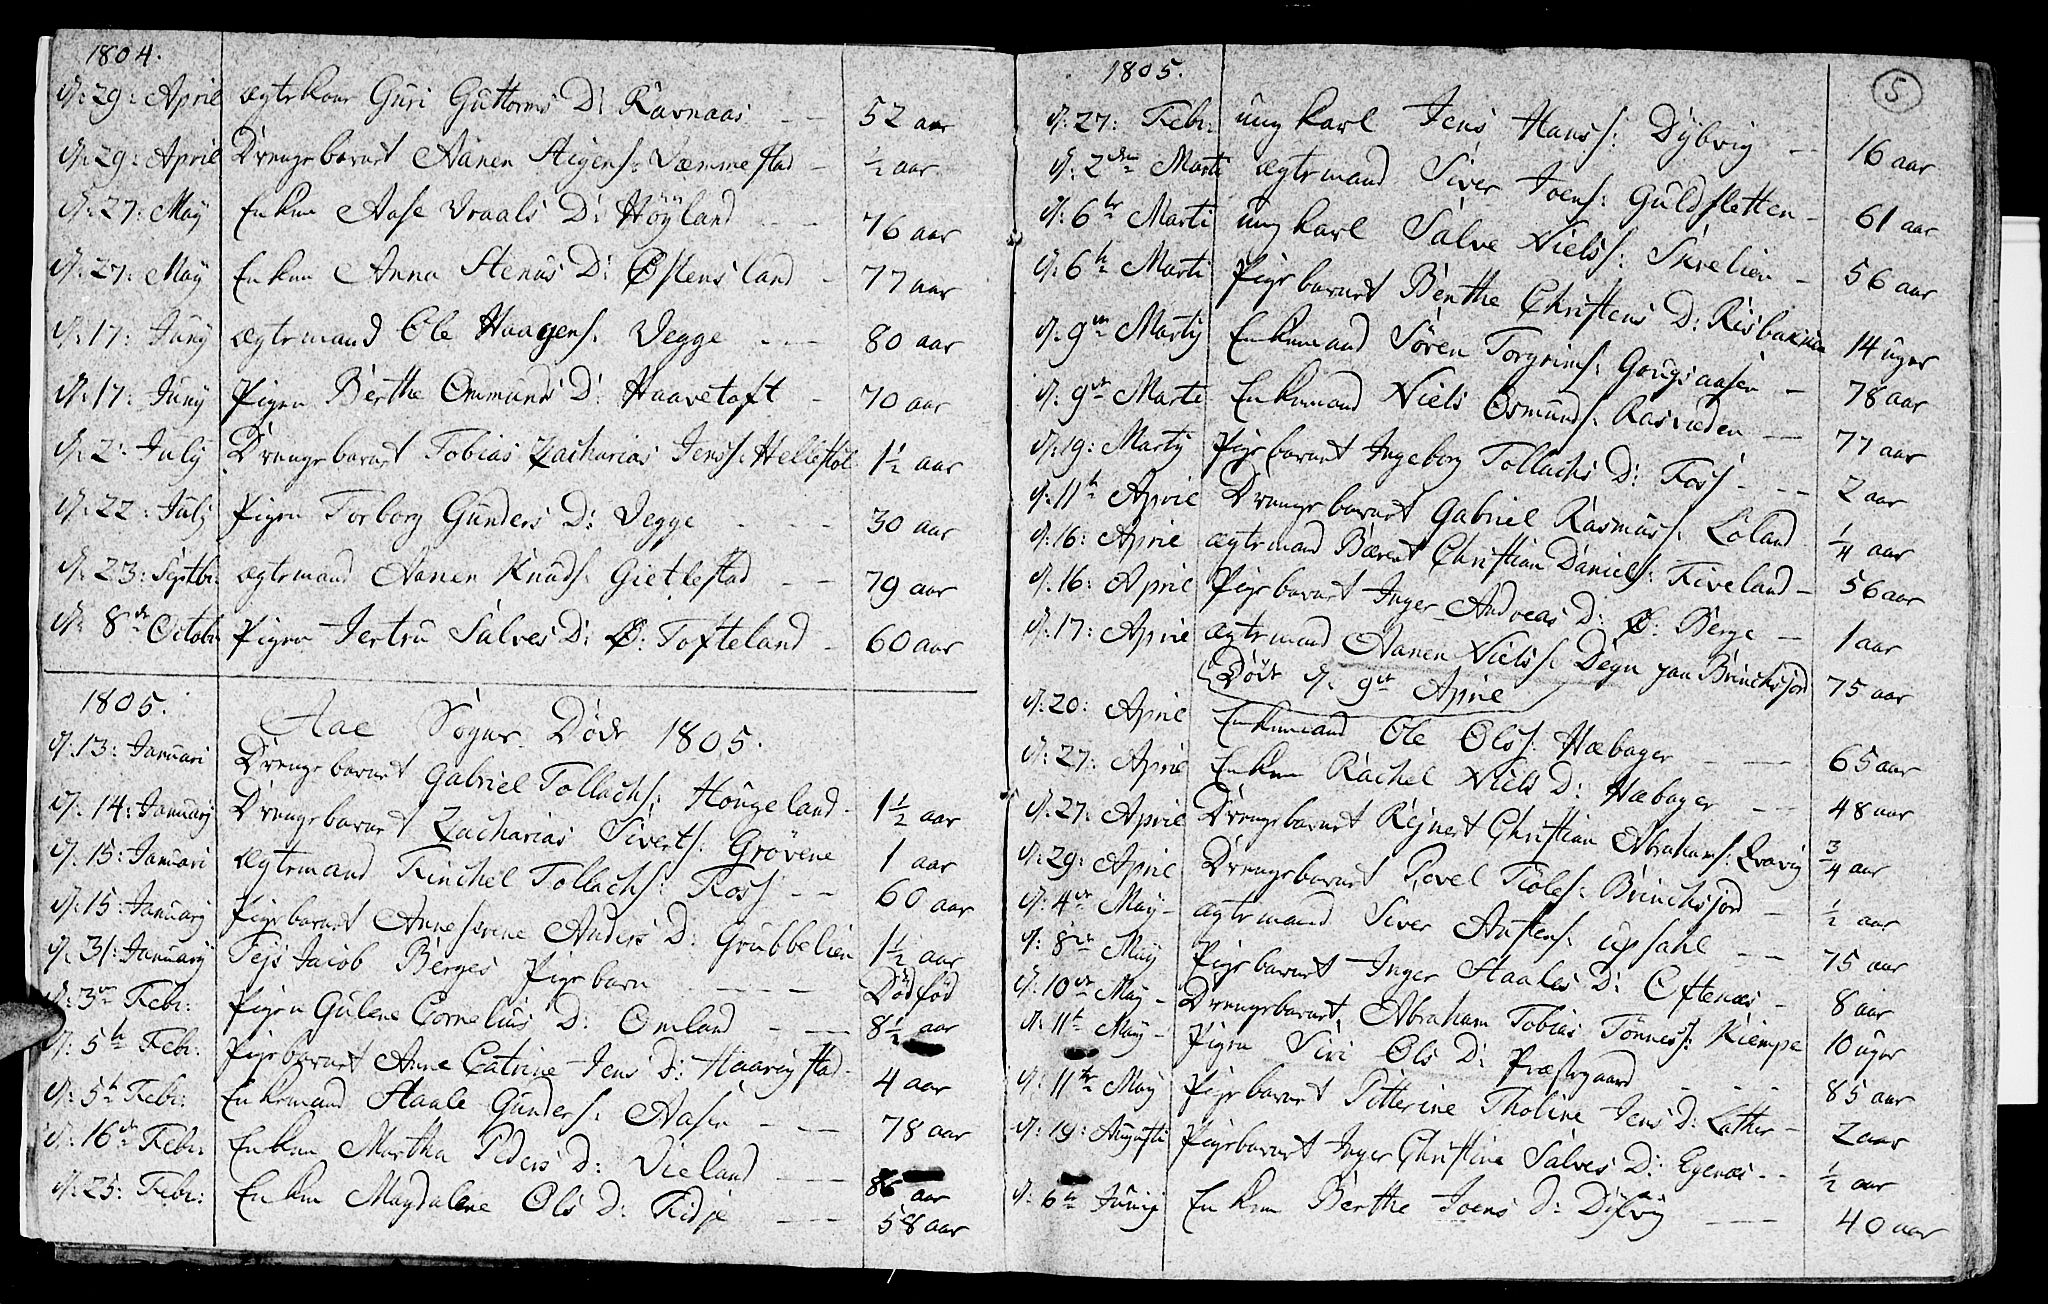 1804.
d: 29: April ægtekone Guri Guttorms D: Ravnaas -- 52 aar
d: 29: April Drengebarnet Aanen Stigens: Væmmestad - ½ aar
d: 27: May Enken Aase Vraals D: Höyland -- 76 aar
d: 27: May Enken Anna Stenus D: Østensland - 77 aar
d: 17: Juny ægtemand Ole Haagens: Vegge --- 80 aar
d: 17: Juny Pigen Berthe Ommunds D: Haavetoft - 70 aar
d: 2: July Drengebarnet Tobias Zacharias Jenss: Hellestøl 1½ aar
d: 22: July Pigen Torborg Gunders D: Vegge --- 30 aar
d: 23: Septbr: ægtemand Aanen Knuds: Gietlestad -- 79 aar
d: 8de Octobr Pigen Jertru Salves D: Ø: Tofteland - 60 aar
1805.
Aae Sogns Døde 1805.
d: 13: Januari Drengebarnet Gabriel Tollachs: Hougeland - 1½ aar
d: 14: January Drengebarnet Zacharias Siverts: Grövene 1 aar
d: 15: Januari ægtemand Finchel Tollachs: Foss -- 60 aar
d: 15: January Pigebarnet Annesirene Anders D: Grubbelien 1½ aar
d: 31: January Tejs Jacob Berges Pigebarn ---- Dödfød
d: 3de Febr: Pigen Gulene Cornelius D: Omland --- 8½ aar
d: 5te Febr: Pigebarnet Anne Catrine Jens D: Haavigstad - 4 aar
d: 5te Febr: Enkemand Staale Gunders: Aasen --- 78 aar
d: 16de Febr: Enken Martha Peders D: Vieland --- 86 aar
d: 25: Febr: Enken Magdalene Ols D: Fidje --- 58 aar
5.
1805.
d: 27: Febr: ung karl Jens Hanss: Dybvig -- 16 aar
d: 2den Marti ægtemand Siver Joens: Guldsletten - 61 aar
d: 6te Marti ung karl Salve Nielss: Skrelien - 56 aar
d: 6te Marti Pigebarnet Benthe Christens D: Risbakken 14 uger
d: 9de Martij Enkemand Sören Torgrims: Gougsaasen - 78 aar
d: 9de Marti Enkemand Niels Osmunds: Rasvieden -- 77 aar
d: 19: Martij Pigebarnet Ingeborg Tollachs D: Foss --- 2 aar
d: 11te April Drengebarnet Gabriel Rasmus: Loland ¼ aar
d: 16: April ægtemand Bærent Christian Daniels: Fiveland - 56 aar
d: 16: April Pigebarnet Inger Andreas D: Ø: Berge - 1 aar
d: 17: April ægtemand Aanen Nielss: Degn paa Brinchsjord 75 aar
(Døde d: 9de April
d: 20: April Enkemand Ole Olss: Hæbager --- 65 aar
d: 27: April Enken Rachel Niels D: Hæbager -- 48 aar
d: 27: April Drengebarnet Rejnert Christian Abrahams: Qvavig ¾ aar
d: 29: April Drengebarnet Povel Tiöls: Brinchsjord - ½ aar
d: 4de May - ægtemand Siver Austens: upsahl -- 75 aar
d: 8de May Pigebarnet Inger Staales D: Oftenæs - 8 aar
d: 10de May - Drengebarnet Abraham Tobias Tönness: Kiempe 10 uger
d: 11te May - Pigen Siri Ols D: Præstegaard --- 85 aar
d: 11te May Pigebarnet Pitterine Tholine Jens D: Lather - 2 aar
d: 19: Augusti Pigebarnet Inger Christine Salves D: Egenæs -- ½ aar
d: 6te Junij Enken Berthe Joens D: Dybvig --- 40 aar